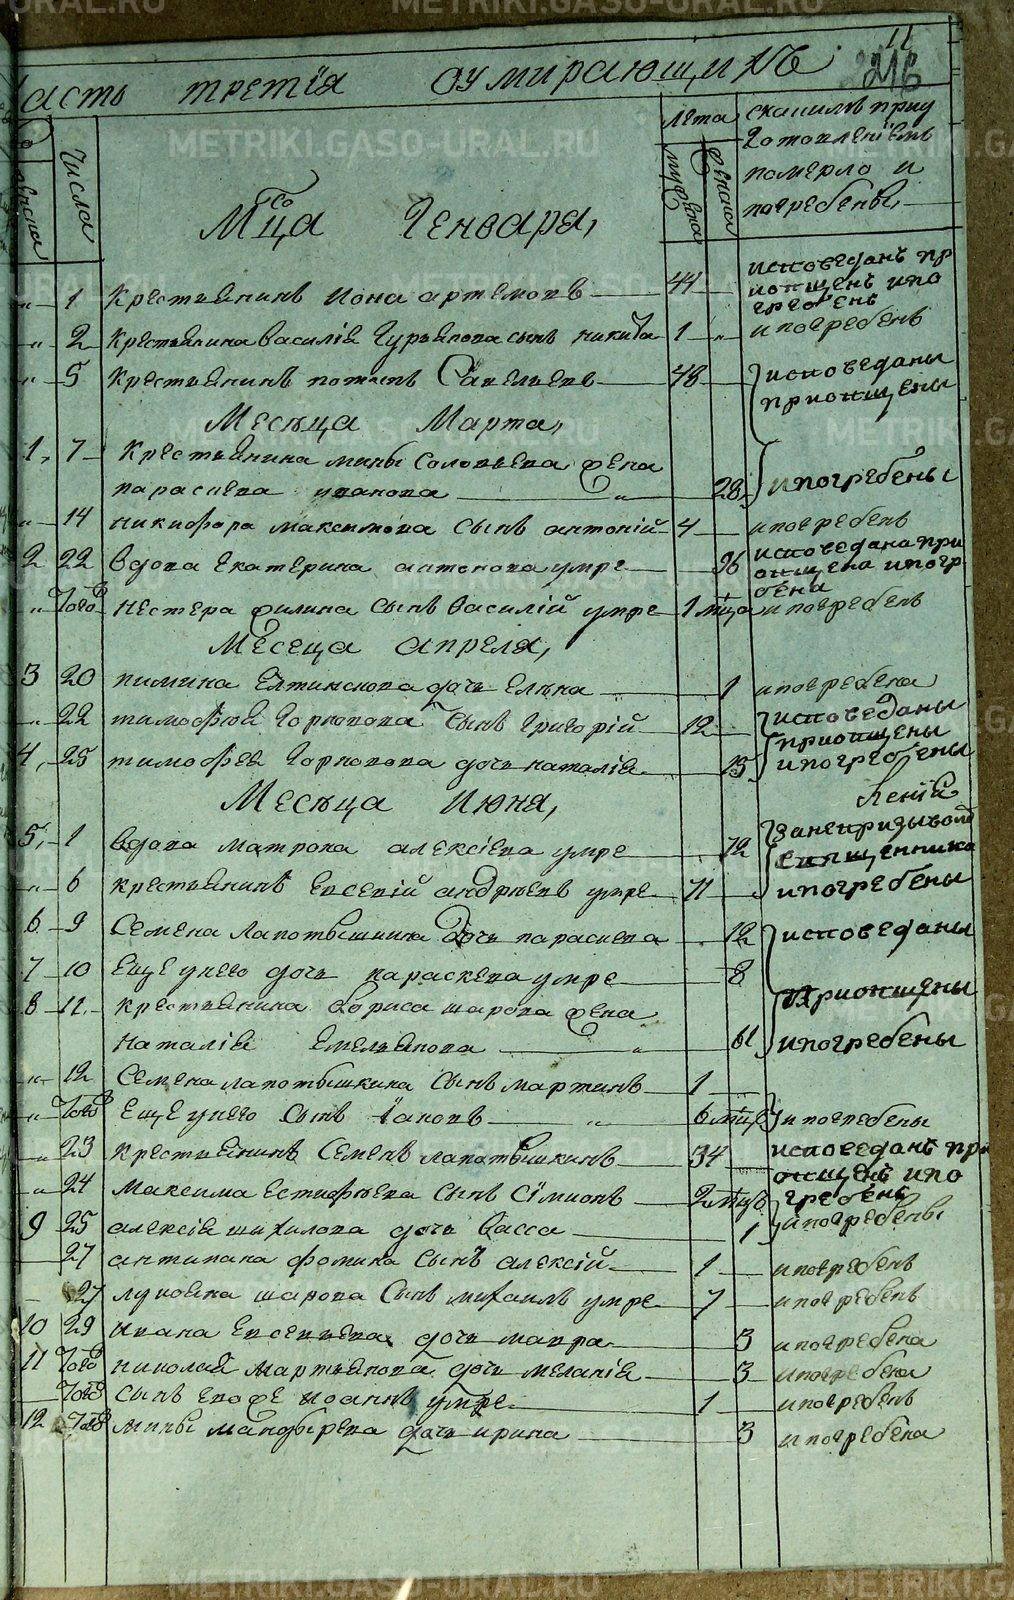 METRIKI.GASO-URAL.RU
11
216
асть третїя оумирающихъ
Числа
женска
Лета
мужеска
женска
скаким приу
готовленїемъ
померло и
погребены
Мца Генваря,
1 Крестьянинъ Иона артемовъ 44 исповеданъ пр
иопщенъ ипо
гребенъ
2 Крестьянина Василїя Гурьянова сынъ никита 1 и погребенъ
5 Крестьянинъ потапъ Савельевъ 48 исповеданы
приопщены
Месяца Марта,
1, 7 Крестьянина мины Соловьева жена
параскева иванова 28 ипогребены
14 никифора максимова сынъ антонїй 4 ипогребенъ
2 22 вдова екатерина антонова умре 96 исповедана при
опщена ипогр
бена
Того нестера филина сынъ василїй умре 1 мца ипогребенъ
Месеца апреля,
3 20 пимина елтинскова дочь елена 1 ипогребена
22 тимофея Горнового сынъ григорїй 12 исповеданы
приопщены
4, 25 тимофея Горновова дочь наталїя 15 ипогребены
Месяца Июня,
5, 1 вдова матрона алексїева умре 72 занепризывом
священника
6 крестьянинъ евсевїй андреевъ умре 71 ипогребены
6 9 Семена лапотышкина дочь параскева 12 исповеданы
7 10 еще унего дочь параскева умре 8
приопщены
8 11 крестьянина бориса шарова жена
наталїя емельянова 61 ипогребены
12 Семена лапотышкина сынъ мартинъ 1
Того еще унего сынъ їаковъ 6 мцъ ипогребены
23 крестьянинъ Семенъ лапотышкинъ 34 исповеданъ при
опщенъ ипо
гребенъ
24 Максима естифеева сынъ сїмионъ 2 мцъ
9 25 алексїя шихилова дочь васса 1 ипогребены
27 антипана фомина сынъ алексїй 1 ипогребенъ
27 лукояна шарова сынъ михаилъ умре 7 ипогребенъ
10 29 ивана евсевьева дочь мавра 3 ипогребена
11 Того николая мартьянова дочь меланїя 3 ипогребена
Того сынъ евоже иоаннъ умре 1 ипогребенъ
12 Того мины мандырева дочь ирина 3 ипогребена